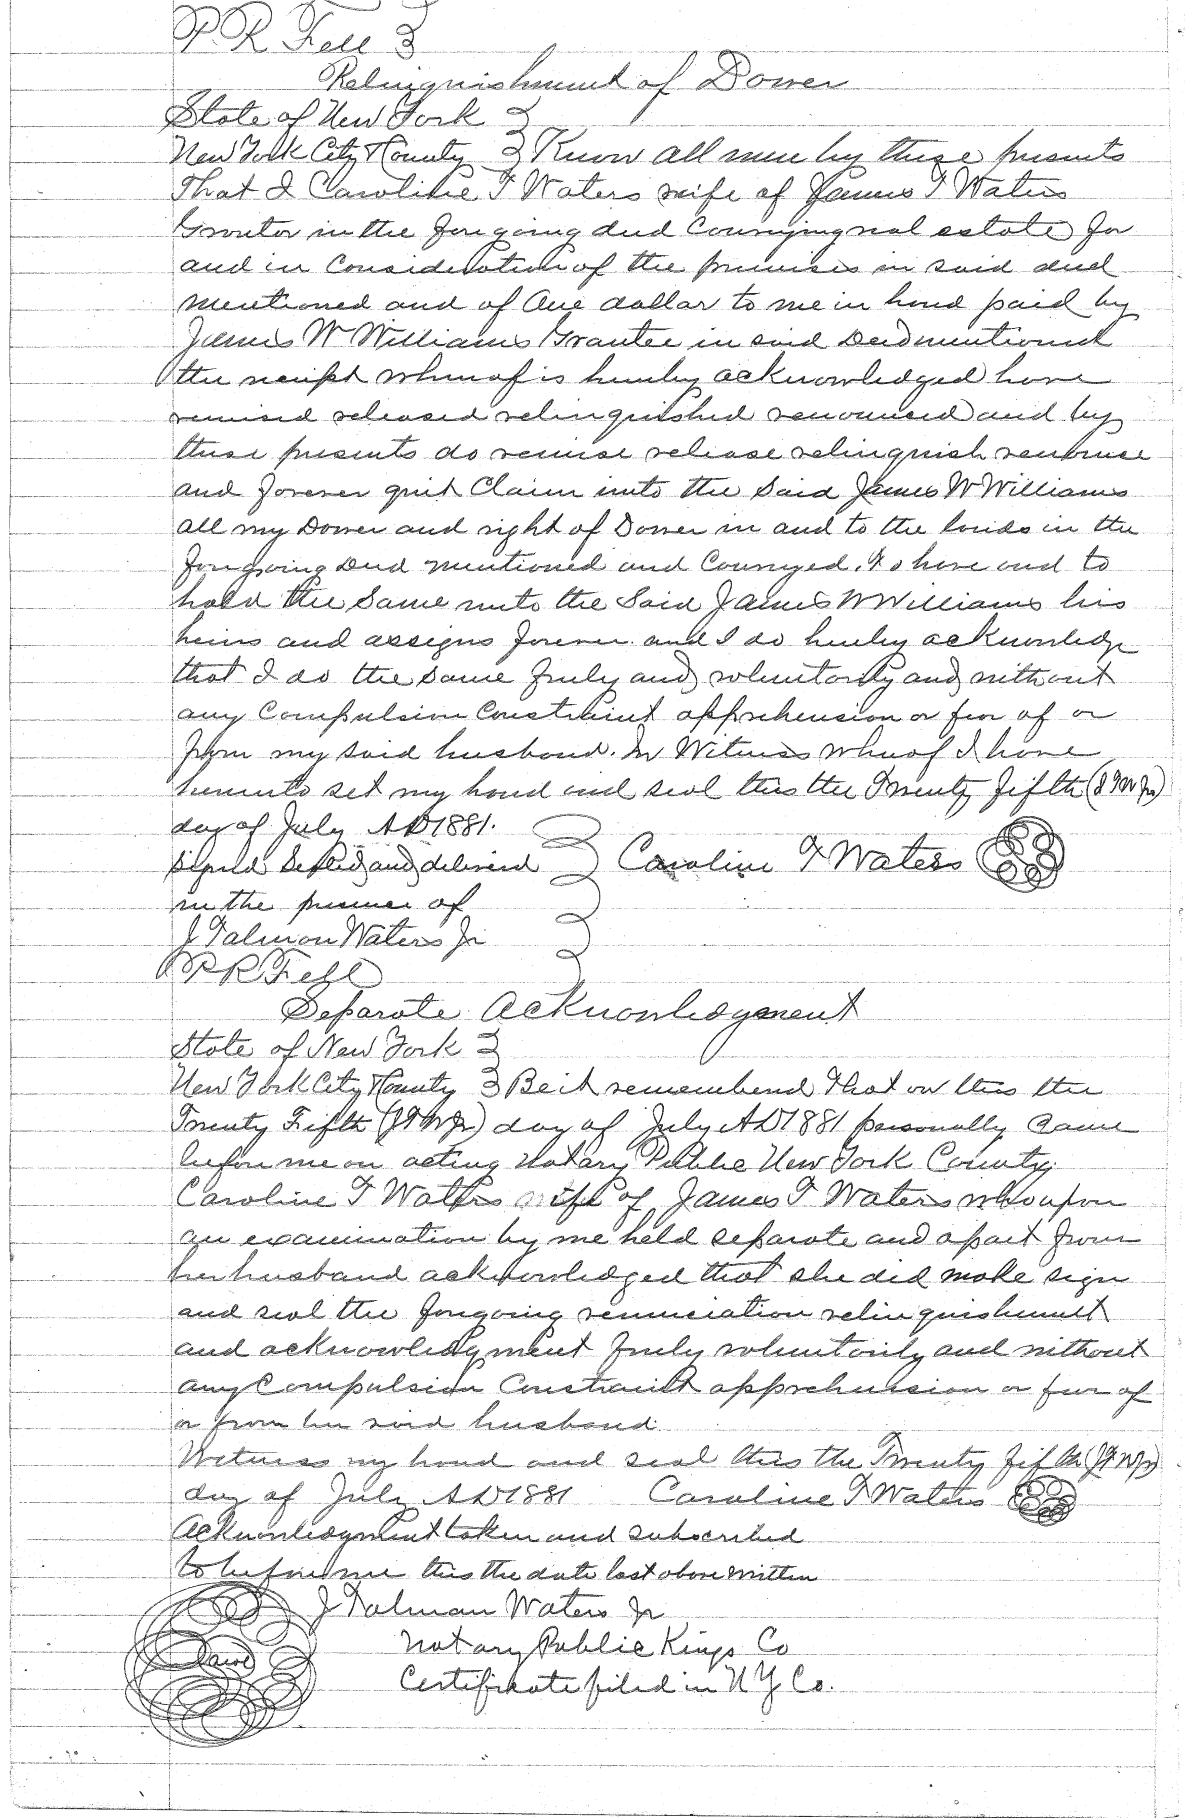 P. R. Fell
Relinquishment of Dower
State of New York
New York City & County Know all men by these presents
That I Caroline T Waters wife of James T Waters
Grantor in the foregoing deed Conveying real estate for
and in Consideration of the premises in said deed
mentioned and of One dollar to me in hand paid by
James W Williams Grantee in said Deed mentioned
the receipt whereof is hereby acknowledged have
remised released relinquished renounced and by
these presents do remise release relinquish renounce
and forever quit Claim unto the Said James W Williams
all my Dower and right of Dower in and to the lands in the
foregoing Deed mentioned and Conveyed. To have and to
hold the Same unto the Said James W Williams his
heirs and assigns forever. and I do hereby acknowledge
that I do the same freely and voluntarily and without
any Compulsion Constraint apprehension or fear of or
from my said husband. In Witness whereof I have
hereunto set my hand and seal this the Twenty fifth (JTWJr)
day of July AD 1881.
Signed Sealed and delivered Caroline T Waters
in the presence of
J Talman Waters Jr
P R Fell
Separate Acknowledgment
State of New York
New York City & County Be it remembered That on this the
Twenty Fifth (JTWJr) day of July AD 1881 personally came
before me an acting Notary Public New York County
Caroline T Waters wife of James T Waters who upon
an examination by me held separate and apart from
her husband acknowledged that she did make sign
and seal the foregoing renunciation relinquishment
and acknowledgment freely voluntarily and without
any Compulsion Constraint apprehension or fear of
or from her said husband.
Witness my hand and seal this the Twenty fifth (JTWJr)
day of July AD 1881 Caroline T Waters
Acknowledgment taken and subscribed
to before me this the date last above written
J Talman Waters Jr
Notary Public Kings Co
Certificate filed in N Y Co.